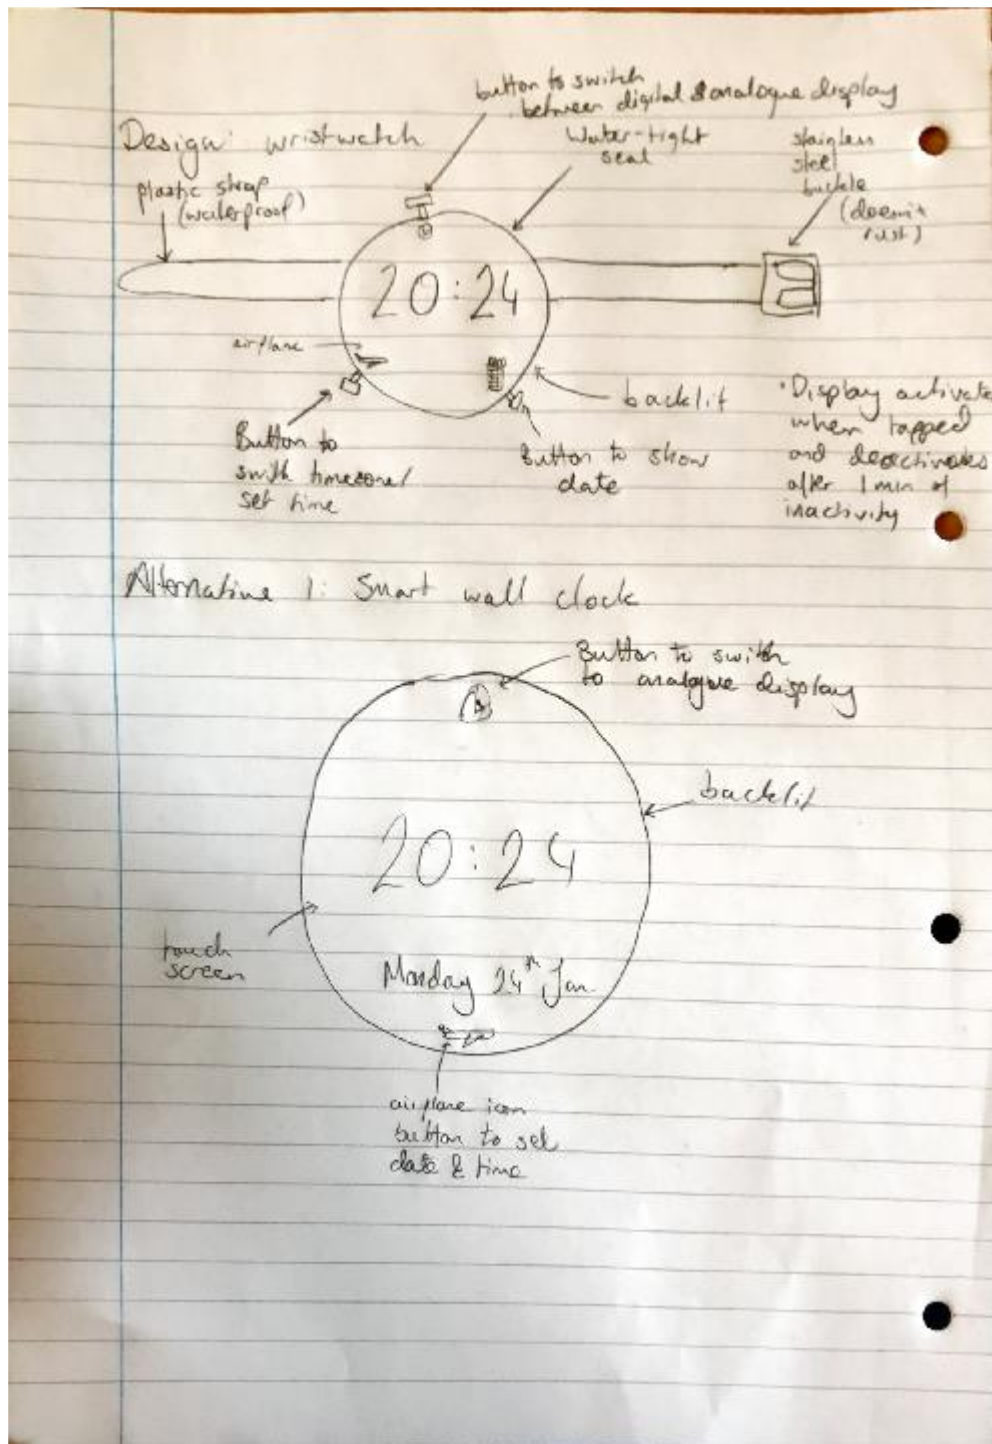 button to switch
between digital & analogue display
Design wristwatch
Water-tight
seal
stainless
steel
buckle
(doesn't
rust)
plastic strap
(waterproof)
20:24
airplane
backlit
Button to
swith timezone/
set time
Button to show
date
• Display activates
when tapped
and deactivates
after 1 min of
inactivity
Alternative 1: Smart wall clock
Button to switch
to analogue display
backlit
20:24
touch
screen
Monday 24th Jan
airplane icon
button to set
date & time